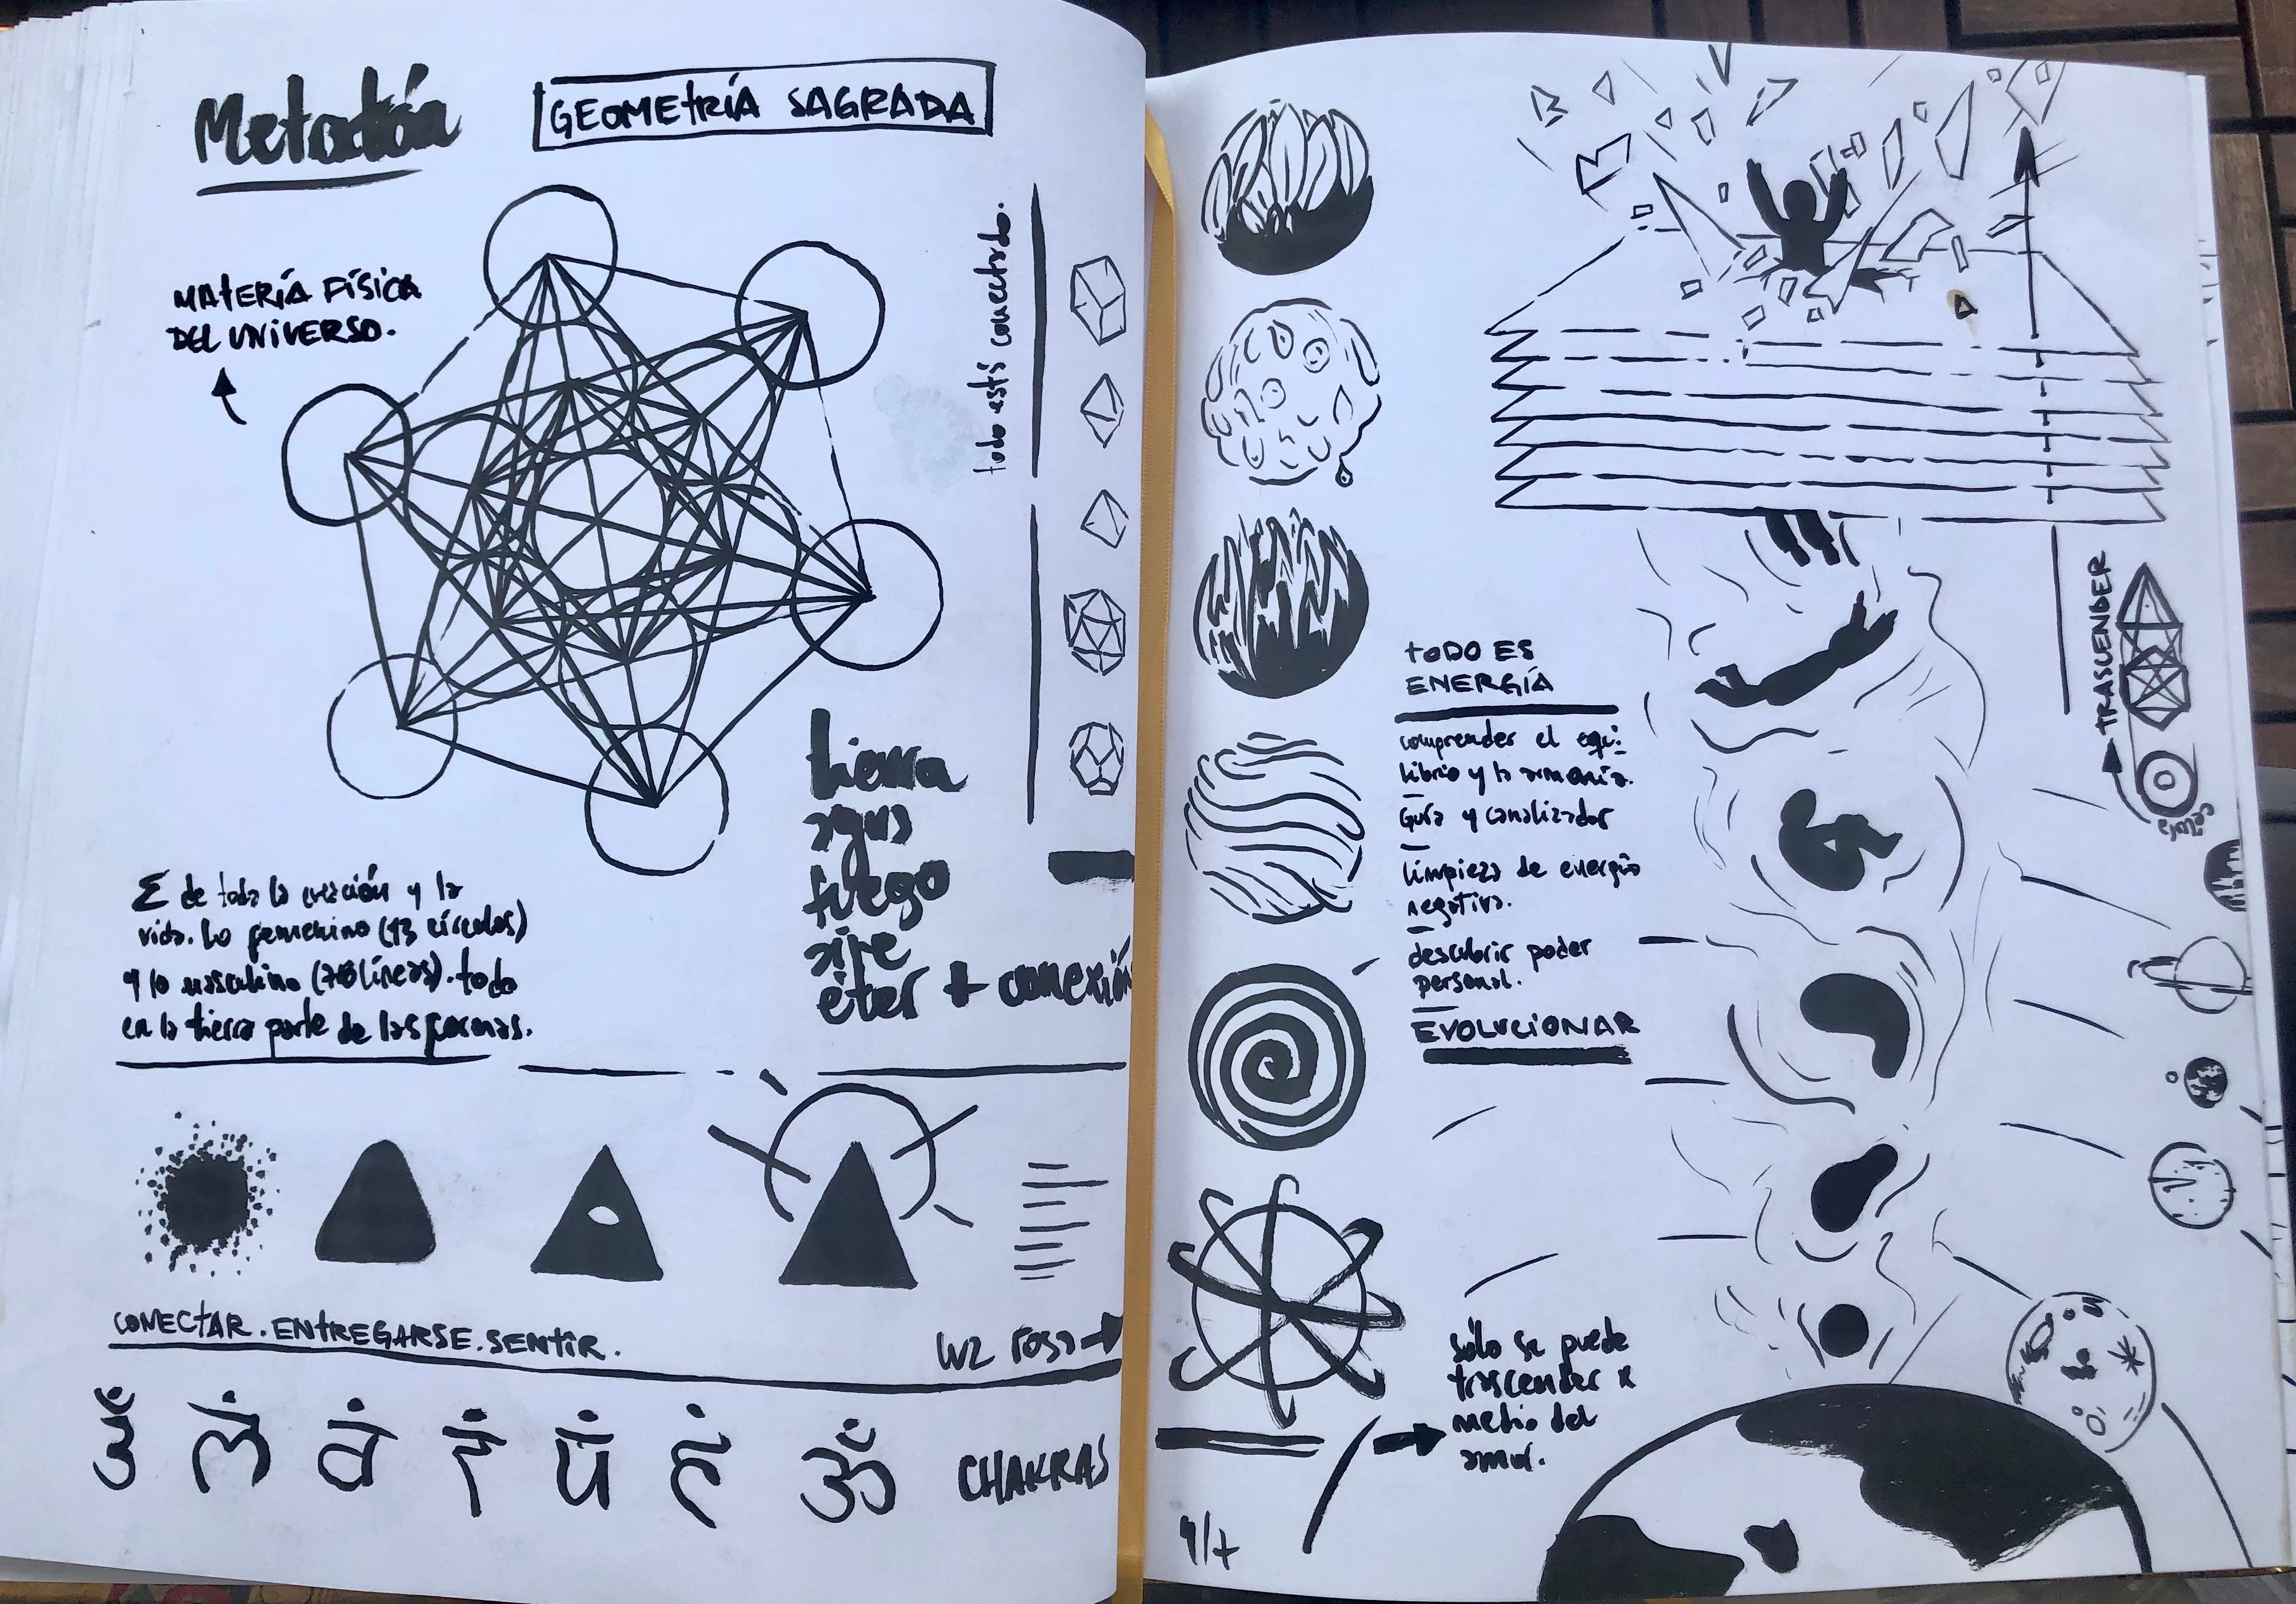 Metatrón
GEOMETRÍA SAGRADA
MATERIA FÍSICA
DEL UNIVERSO.
todo está conectado.
tierra
agua
fuego
aire
éter + conexión
Σ de toda la creación y la
vida. Lo femenino (13 círculos)
y lo masculino (78 líneas). todo
en la tierra parte de las formas.
CONECTAR. ENTREGARSE. SENTIR.
luz rosa
ॐ लं वं रं यं हं ॐ
CHAKRAS
TODO ES
ENERGÍA
comprender el equi-
librio y la armonía.
Guía y canalizador
limpieza de energía
negativa.
descubrir poder
personal.
EVOLUCIONAR
TRASCENDER
célula
sólo se puede
trascender x
medio del
amor.